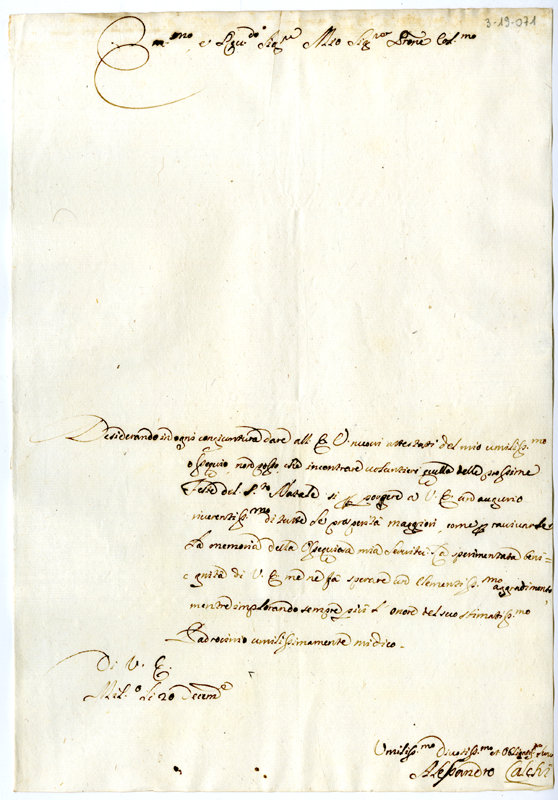 3-19-071
Em.mo e Rev.do Sig.re Mio Sig.re Prone Col.mo
Desiderando in ogni congiuntura dare all' E V. nuovi attestati del mio umiliss.mo
ossequio non posso che incontrare volentieri quella delle prossime
Feste del S.to Natale si per porgere a V. E. un augurio
riverentiss.mo di tutte le prosperità maggiori, come per ravivarle
la memoria della ossequiosa mia servitù. La sperimentata beni=
gnità di V. E. me ne fà sperare un clementiss.mo aggradimento,
mentre implorando sempre più l' onore del suo stimatiss.mo
Padrocinio umilissimamente mi dico.
Di V. E.
Mil.o li 20 Decem.e
Umiliss.mo Divotiss.mo et Obligatiss.mo
Alessandro Calchi